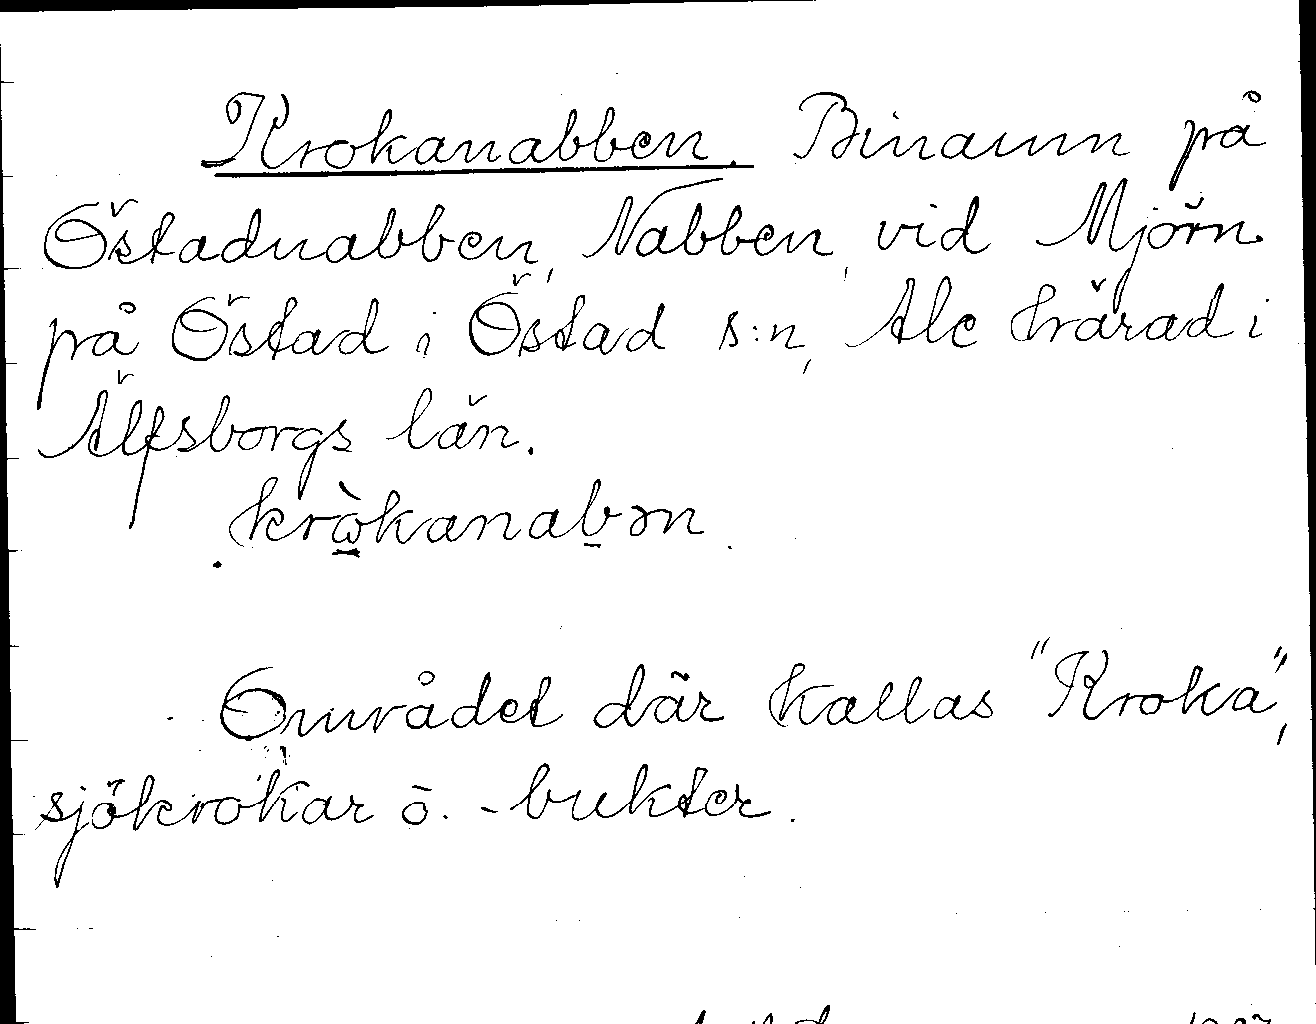 Krokanabben. Binamn på
Östadnabben, Nabben, vid Mjörn
på Östad i Östad s:n, Ale härad i
Älfsborgs län.
kròkanabən.
Området där kallas "Kroka",
sjökrokar o. -bukter.